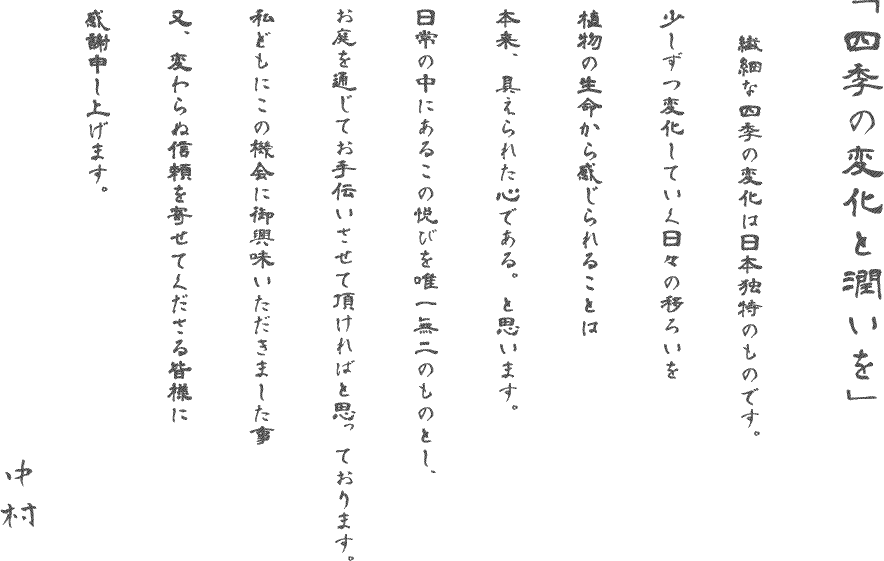 「四季の変化と潤いを」
繊細な四季の変化は日本独特のものです。
少しずつ変化していく日々の移ろいを
植物の生命から感じられることは
本来、具えられた心である。と思います。
日常の中にあるこの悦びを唯一無二のものとし、
お庭を通じてお手伝いさせて頂ければと思っております。
私どもにこの機会に御興味いただきました事
又、変わらぬ信頼を寄せてくださる皆様に
感謝申し上げます。
中村